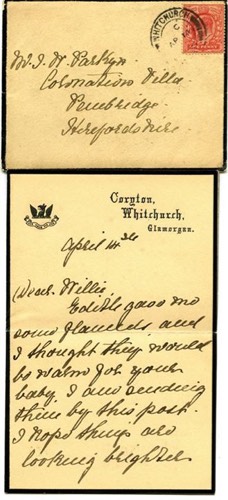 WHITCHURCH
C
AP 14
Mr. J. W. Parkyn
Coronation Villa
Pembridge
Herefordshire
Coryton,
Whitchurch,
Glamorgan.
April 14th
Dear Willie
Edith gave me
some flannels and
I thought they would
be warm for your
baby. I am sending
them by this post.
I hope things are
looking brighter